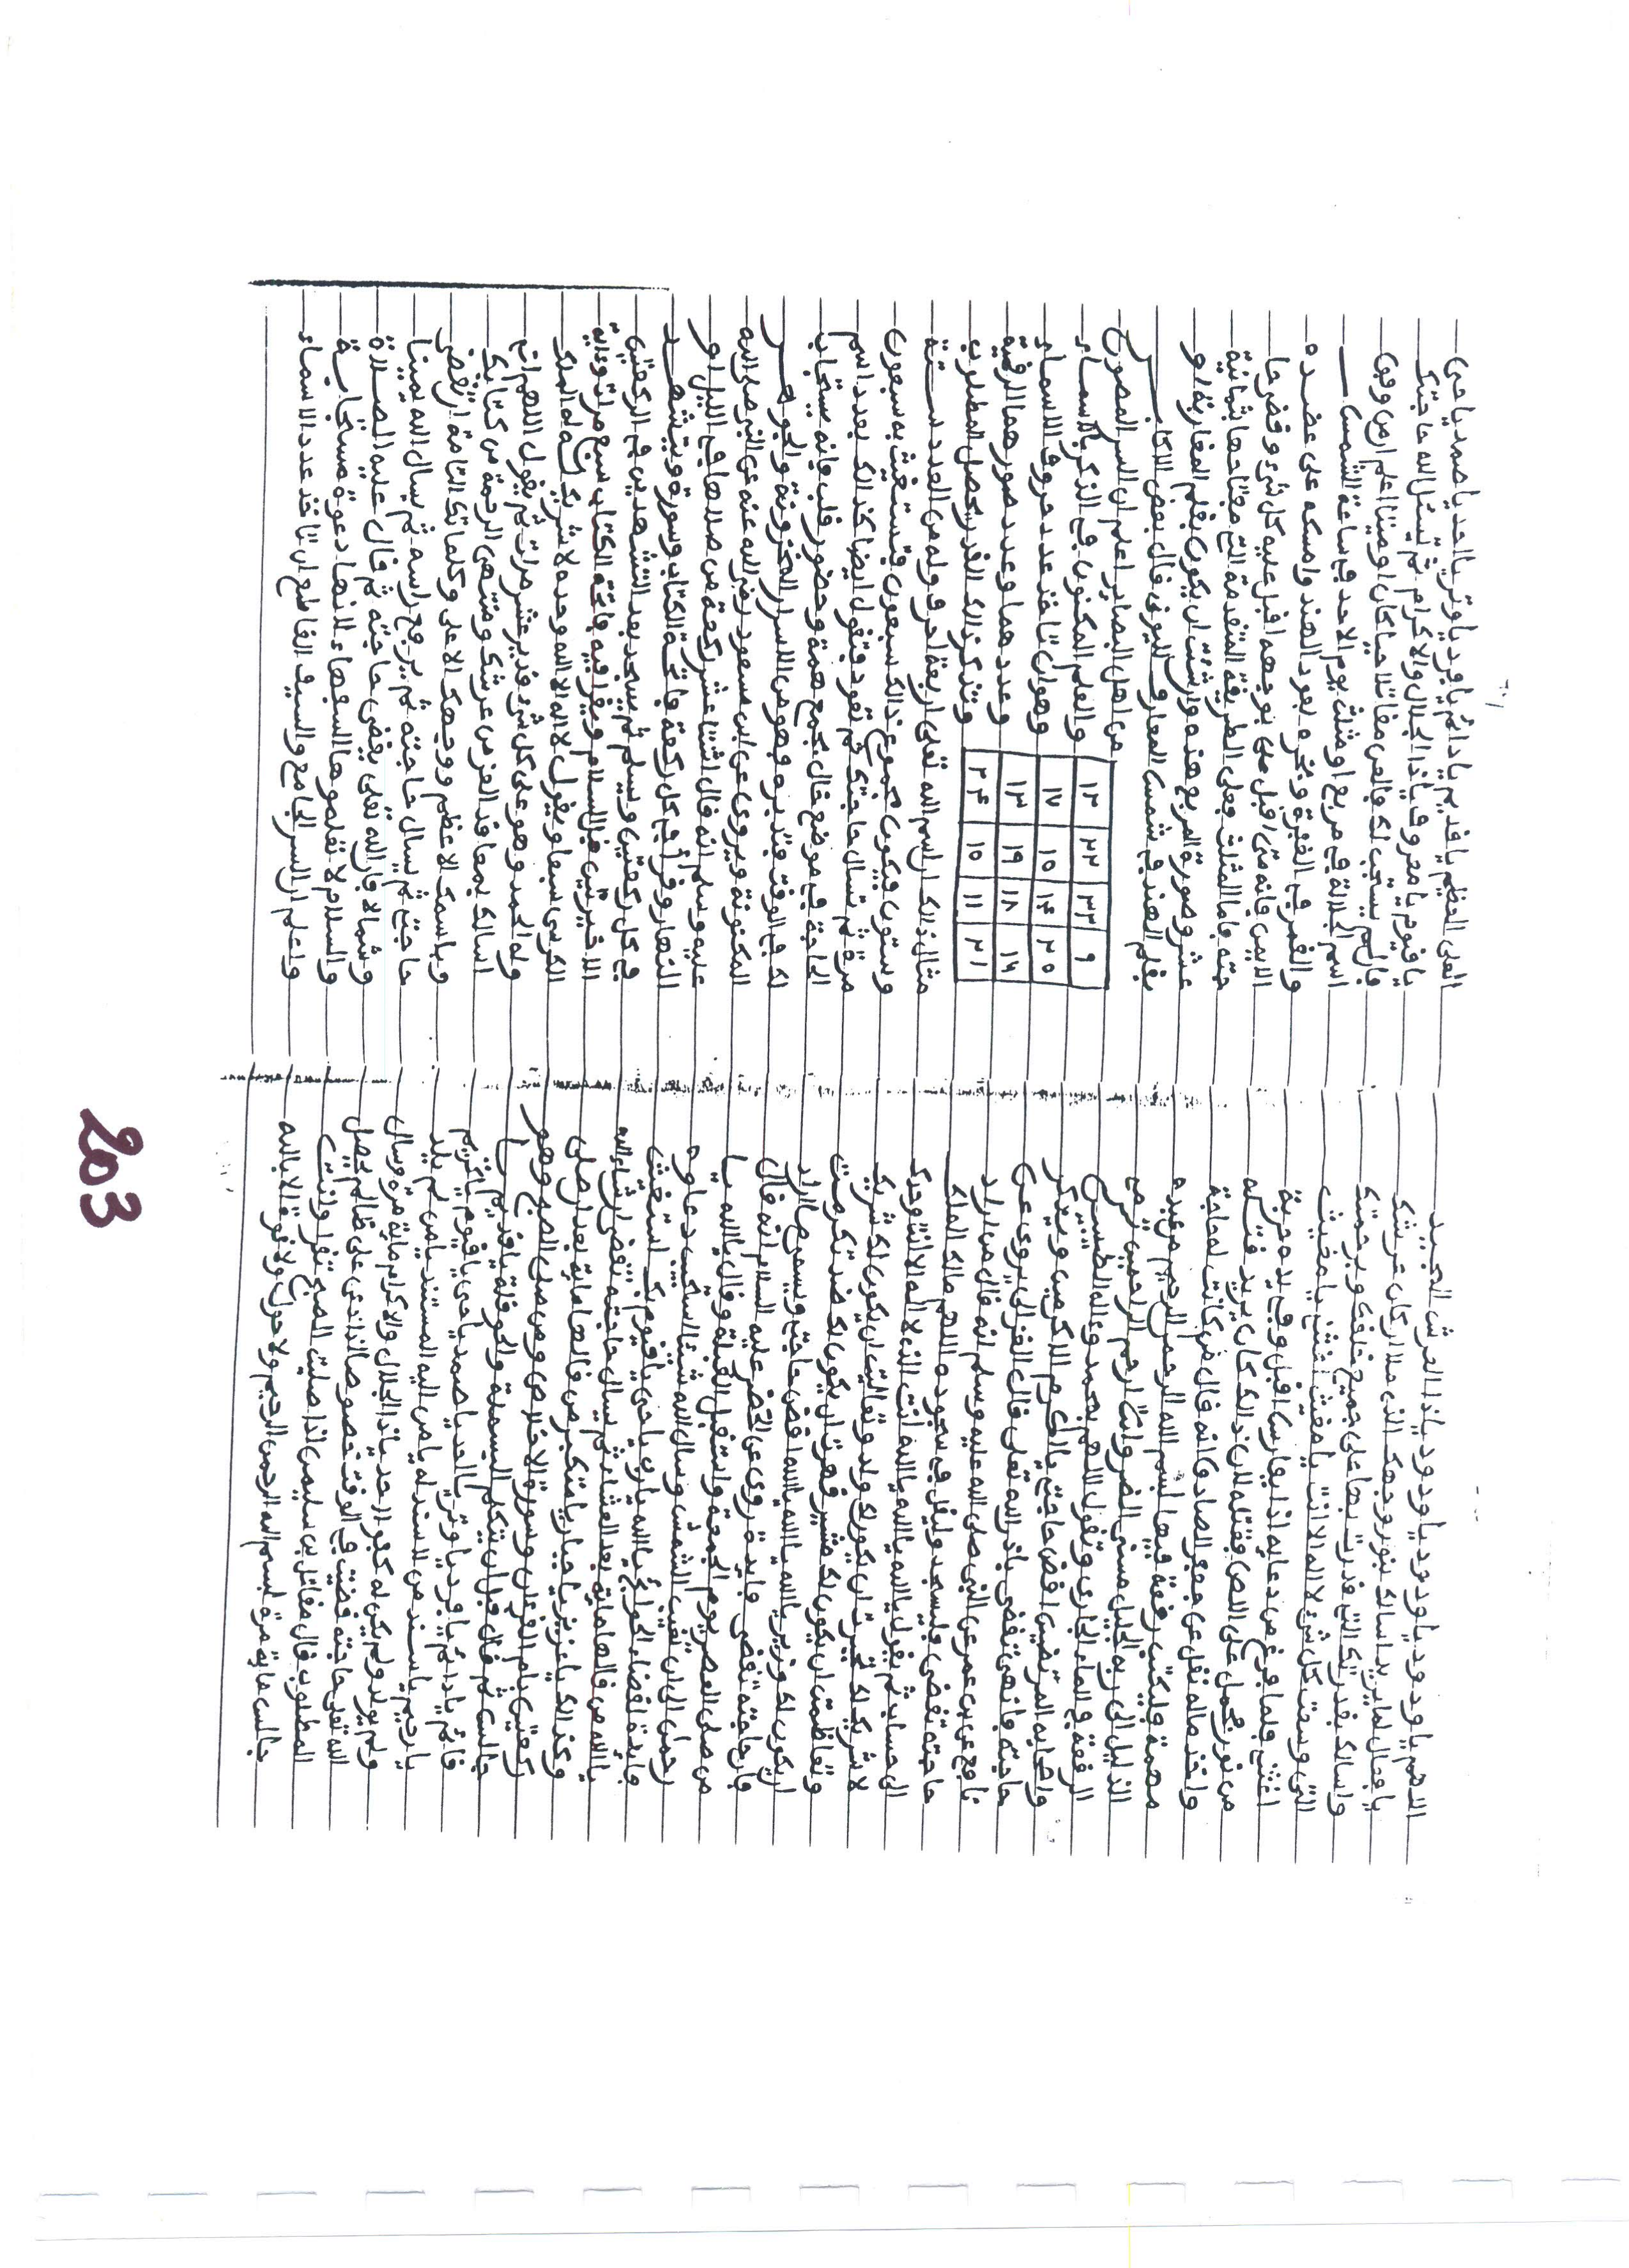 اللهم يا ودود يا ودود يا ودود يا ذا العرش المجيد
يا فعال لما يريد اسالك بنور وجهك الذي ملا اركان عرشك
واسالك بقدرتك التي قدرت بها على جميع خلقك وبرحمتك
التي وسعت كل شيء لا اله الا انت يا مغيث اغثني يا مغيث
اغثني فلما فرغ من دعايه اذا بفارس اقبل وفي يده حربة
من نور فحمل على اللص فقتله لان ذالك كان يريد قتله
واخذ ماله نقل عن جعفر الصادق انه قال من كانت له حاجة
مهمة فليكتب رقعة فيها بسم الله الرحمن الرحيم من عبده
الذليل الى ربه الجليل مسني الضر وانت ارحم الراحمين ثم يرم
الرقعة في الماء الجاري وتقول اللهم بمحمد وءاله الطيبين
واصحابه المرتضين اقض حاجتي يا اكرم الاكرمين ويذكر
حاجته فانها تقضى باذن الله تعلى قال الغزالي يروى عن
نافع عن بن عمر عن النبي صلى الله عليه وسلم انه قال من اراد
حاجته تقضى فليسجد وليقل في سجوده اللهم مالك الملك
الى حساب ثم يقول يا الله يا الله يا الله انت الذي لا اله الا انت وحدك
لا شريك لك تجبرت ان يكون لك ولد وتعاليت ان يكون لك شريك
وتعاظمت ان يكون لك مشير وقهرت ان يكون لك ضد وتكرمت
ان يكون لك وزير يا الله يا الله يا الله اقض حاجتي ويسمي ما اراد
فان حاجته تقضى فايدة روي عن الخضر عليه السلام انه قال
من صلى العصر يوم الجمعة واستقبل القبلة وقال يا الله يا
رحمن الى ان تغيب الشمس وسال الله شيئا استجيب دعاوه
فايدة لقضاء الحوائج يا الله يا رب يا حي يا قيوم بك استغيث
يا الله من قالها ماية بعد العشاء ثم يسال حاجته تقضى ان شاء الله
وكذالك يا عزيز يا جبار يا متكبر من قالها ماية بعد ان صلى
ركعتين بام القرءان وسورة الاخلاص ومن صلى الصبح وهو
جالس ثم قال قبل ان يتكلم البسملة والحوقلة يا قديم يا
قائم يا دائم يا فرد يا وتر يا احد يا صمد يا حي يا قيوم يا كريم
يا رحيم يا سند من لا سند له يا من اليه المستند يا من لم يلد
ولم يولد ولم يكن له كفؤا احد يا ذا الجلال والاكرام ماية مرة وسال
الله تعلى حاجته قضيت في الوقت خصوصا على ظالم يحصل
المطلوب قال مقاتل بن سليمن اذا صليت الصبح تقرا وانت
جالس ماية مرة بسم الله الرحمن الرحيم ولا حول ولا قوة الا بالله
العلي العظيم يا قديم يا دائم يا فرد يا وتر يا احد يا صمد يا حي
يا قيوم يا معروف يا ذا الجلال والاكرام ثم تسئل الله حاجتك
فان لم يستجب لك فالعن مقاتلا حيا كان او ميتا اعلم ان من وفق
اسم الجلالة في مربع او مثلث يوم الاحد في ساعة الشمس
والقمر في وبخره بعود الهند وامسكه على عضده
الايمن فانه متى قبل من بوجهه اقبل عليه كل شيء وقضى حا
جته فاما المثلث فعلى الطريقة المتقدمة التي مفتاحها ثمانية
عشر وصورة المربع هذه وان شئت ان يكون بقلم المغاربة او
بقلم الهند في شمس المعارف للبوني قال بعض الاكابر
من اهل البصاير اعلم ان السر المصون
والعلم المكنون في الذكر بالاسماء
وهو ان تاخذ عدد حروف الاسماء
وعددهما وعدد صورهما الرقمية
وتذكر ذالك القدر يحصل المطلوب
١٢ ٢٢ ٢٣ ٩
١٧ ١٥ ١٤ ٢٥
١٣ ١٩ ١٨ ١٦
٢٤ ١٥ ١١ ٢١
مثال ذالك ان اسم الله تعلى اربعة احرف وله من العدد ستة
وستون فيكون مجموع ذالك سبعون فتستغيث به سبعون
مرة ثم تسال حاجتك ثم تعود فتقول ايضا كذالك بعدد اسم
الحاجة في موضع خال بجمع همة وحضور قلب فانه يستجاب
لك في الوقت فتدبره فهو من الاسرار المخزونة والجواهر
المكنونة ويروى عن ابن مسعود رضي الله عنه عن النبي صلى الله
عليه وسلم انه قال اثنتا عشر ركعة من صلاها في الليل او
النهار وقرا في كل ركعة فاتحة الكتاب وسورة ويتشهد
في كل ركعتين ويسلم ثم يسجد بعد التشهدين في الركعتين
الاخيرتين قبل السلام ويقرا فيه فاتحة الكتاب سبع مرات وءاية
الكرسي سبعا ويقول لا اله الا الله وحده لا شريك له له الملك
وله الحمد وهو على كل شيء قدير عشر مرات ثم يقول اللهم اني
اسالك بمعاقد العز من عرشك ومنتهى الرحمة من كتابك
وباسمك الاعظم ووجهك الاعلى وكلماتك التامة ان تقضي
حاجتي ثم يسال حاجته ثم يرفع راسه ثم يسال الله يمينا
وشمالا فان الله تعلى يقضي حاجته ثم قال عليه الصلاة
والسلام لا تعلموها السفهاء لانها دعوة مستجابة
واعلم ان السر الجامع والسيف القاطع ان تاخذ عدد الاسماء
203